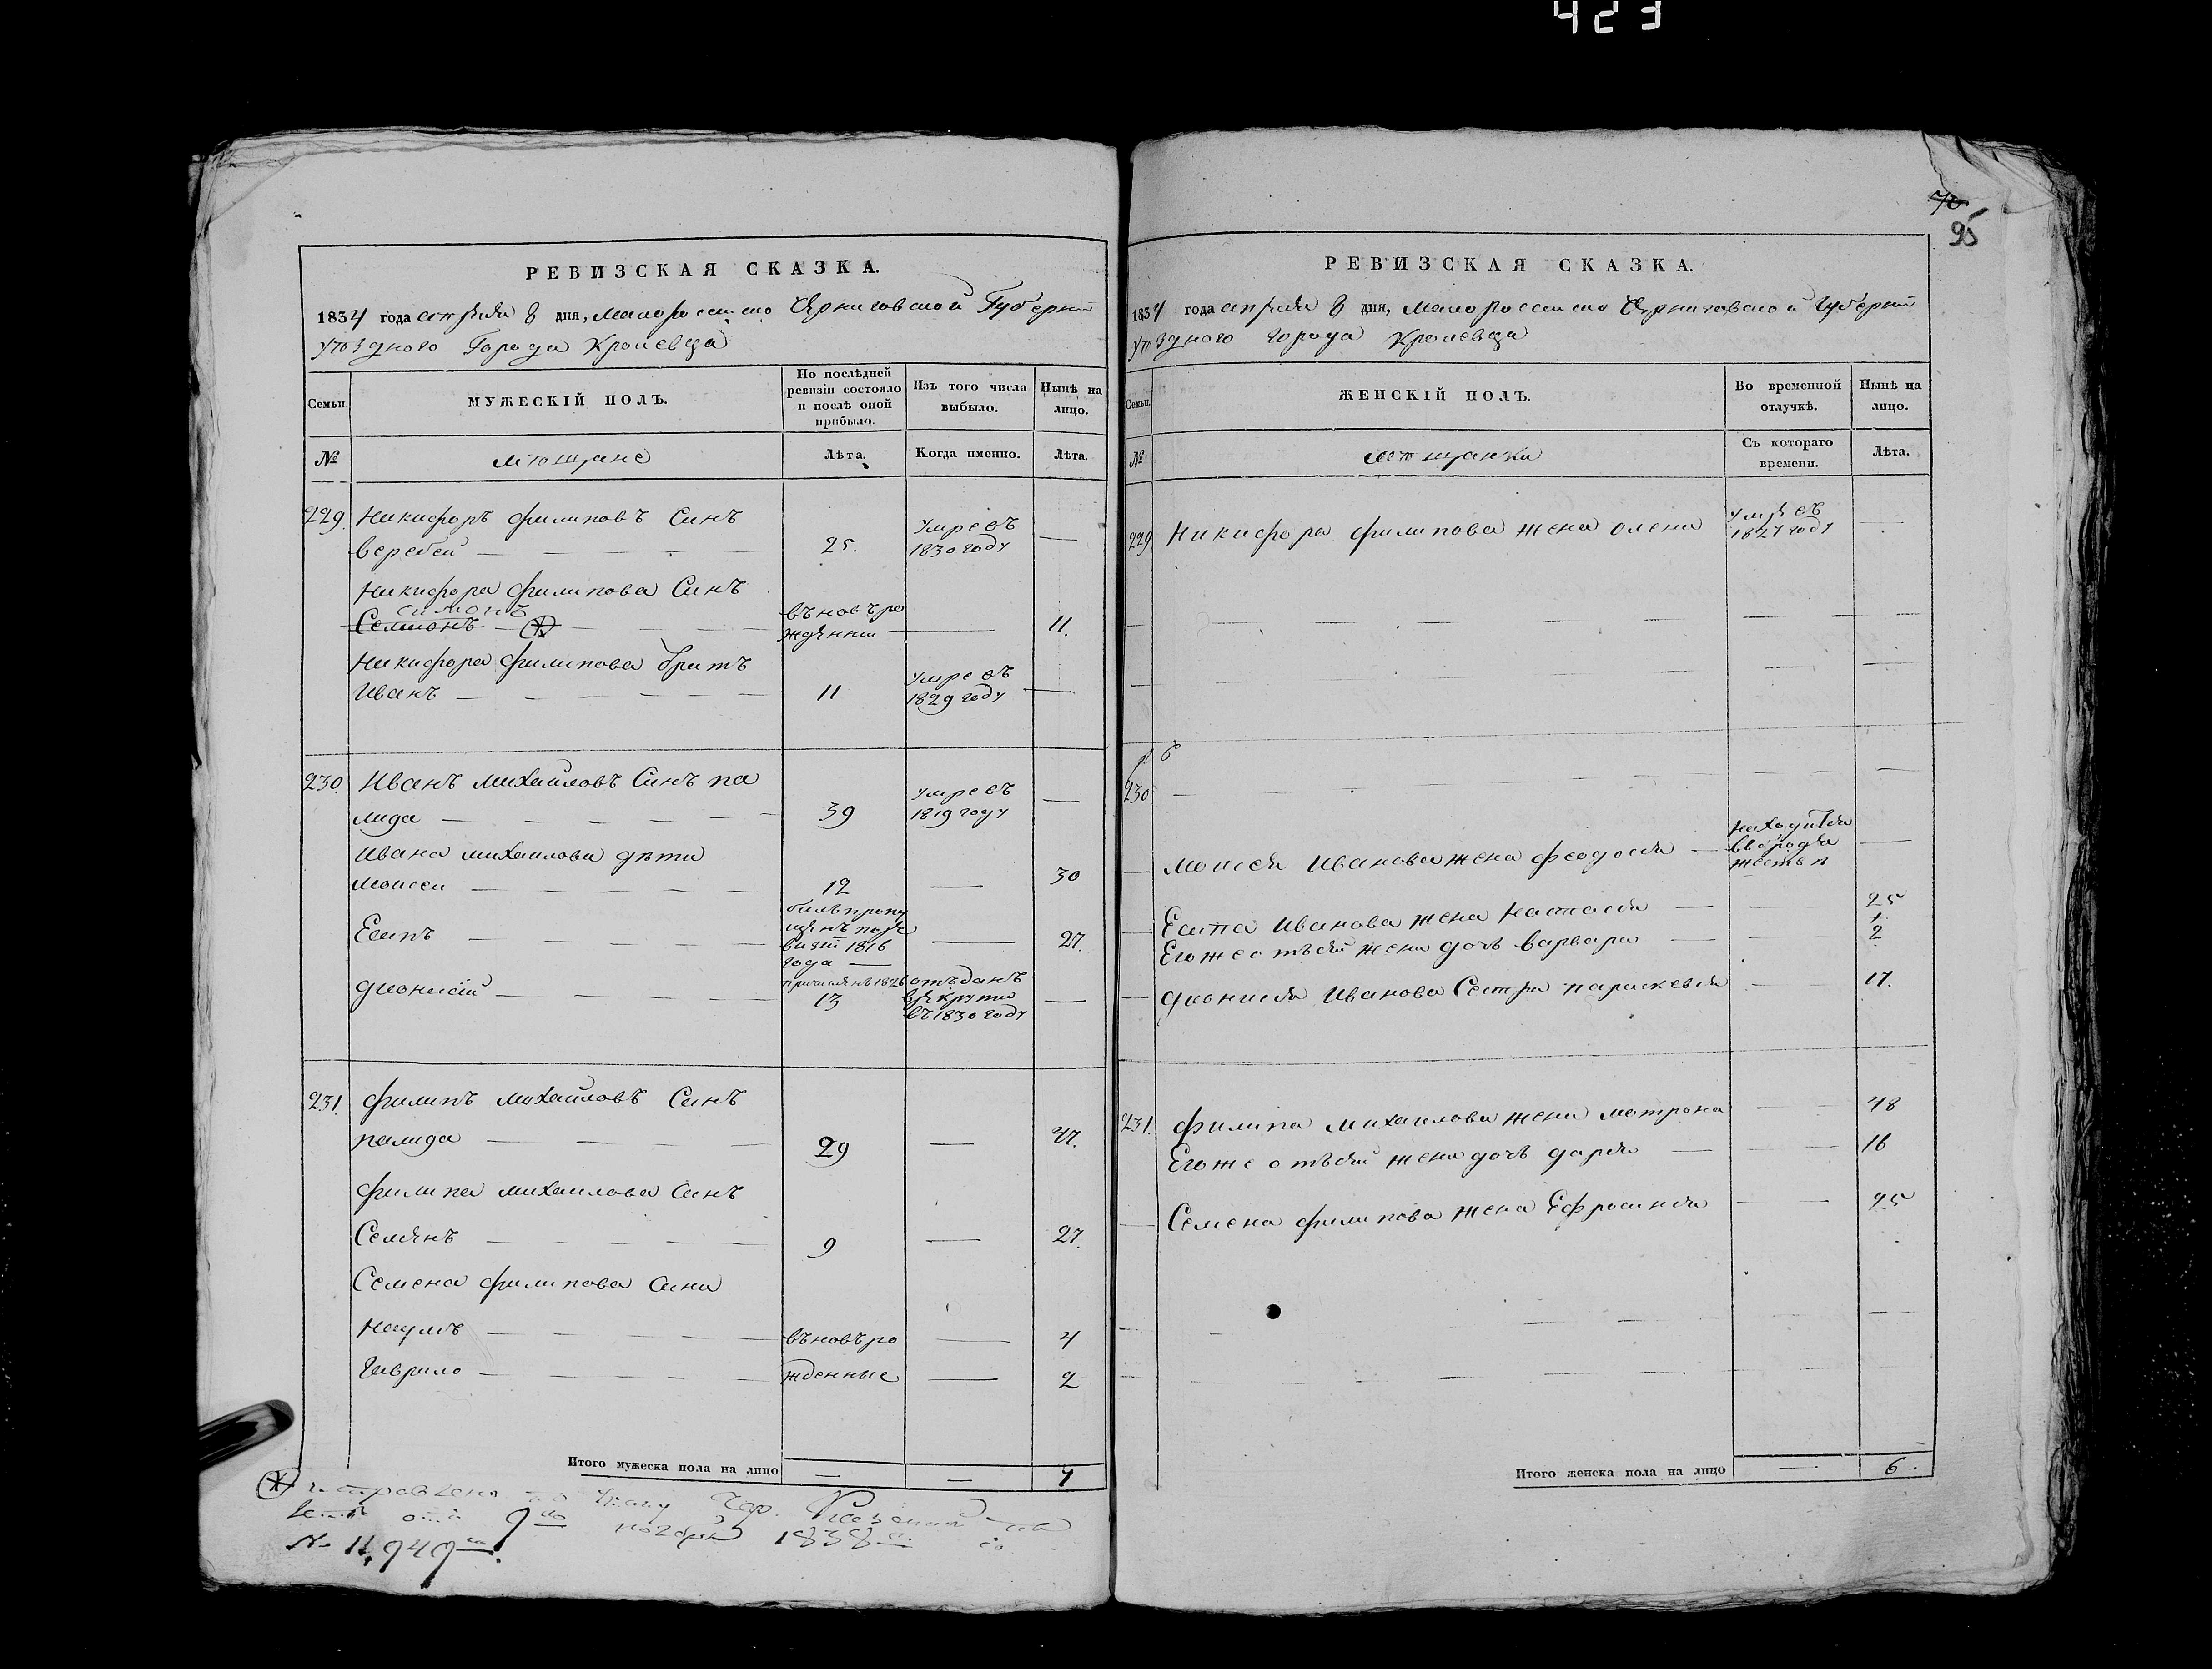 423
70
95
РЕВИЗСКАЯ СКАЗКА.
1834 года апреля 8 дня, Малороссийско Черниговской Губернии
уѣзднаго Города Кролевца
Семьи.
МУЖЕСКІЙ ПОЛЪ.
По послѣдней ревизіи состояло и послѣ оной прибыло.
Изъ того числа выбыло.
Нынѣ на лицо.
№
мѣщане
Лѣта.
Когда именно.
Лѣта.
229. Никифоръ филиповъ Синъ
веребей 25. умревъ 1830 году
Никифора филипова Синъ
симонъ
Семионъ въновъ рожденни 11.
Никифора филипова братъ
Иванъ 11 умревъ 1829 году
230. Иванъ михаиловъ Синъ па
лида 39 умревъ 1819 году
Ивана михаилова дѣти
моисеи 12 30
Есипъ билъ пропущенъ по ревизіи 1816 года 27.
дионисій причисленъ 1826 13 отъданъ врекруты въ 1830 году
231. филипъ михаиловъ Синъ
палида 29 47.
филипа михаилова Синъ
Семенъ 9 27.
Семена филипова Сини
Наумъ въновъ ро 4
Гаврило жденные 2
Итого мужеска пола на лицо 7
исправлено по указу Чер. Казенной
отъ 9го ноября 1838 г. за
№ 11,949м.
РЕВИЗСКАЯ СКАЗКА.
1834 года апреля 8 дня, Малороссийско Черниговской Губернии
уѣзднаго города Кролевца
Семьи.
ЖЕНСКІЙ ПОЛЪ.
Во временной отлучкѣ.
Нынѣ на лицо.
№
мѣщанки
Съ котораго времени.
Лѣта.
229 Никифора филипова жена олена умре въ 1827 году
230
моисея Иванова жена феодосія находится
Есипа Иванова жена Настасія 25
Егоже отъсей жени дочь варвара 2
дионисія Иванова Сестра параскевія 17.
231. филипа михаилова жена мотрона 48
Егоже отъсей жени дочь дарія 16
Семена филипова жена Ефросинія 25
Итого женска пола на лицо 6.